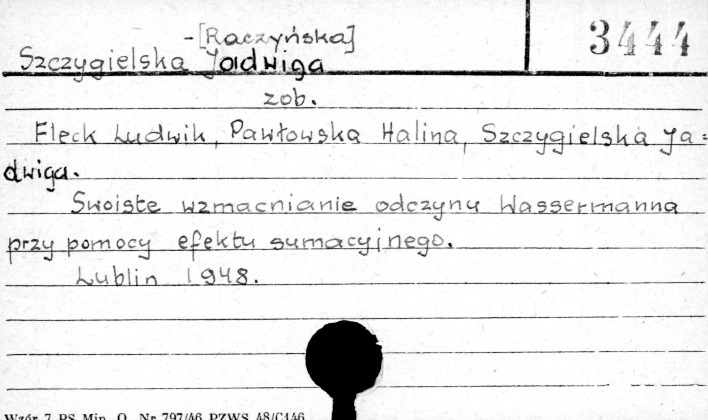 -[Raczyńska]
3444
Szczygielska Jadwiga
zob.
Fleck Ludwik, Pawłowska Halina, Szczygielska Ja=
dwiga.
Swoiste wzmacnianie odczynu Wassermanna
przy pomocy efektu sumacyjnego.
Lublin 1948.
Wzór 7 PS Min. O. Nr 797/46 PZWS 48/C146